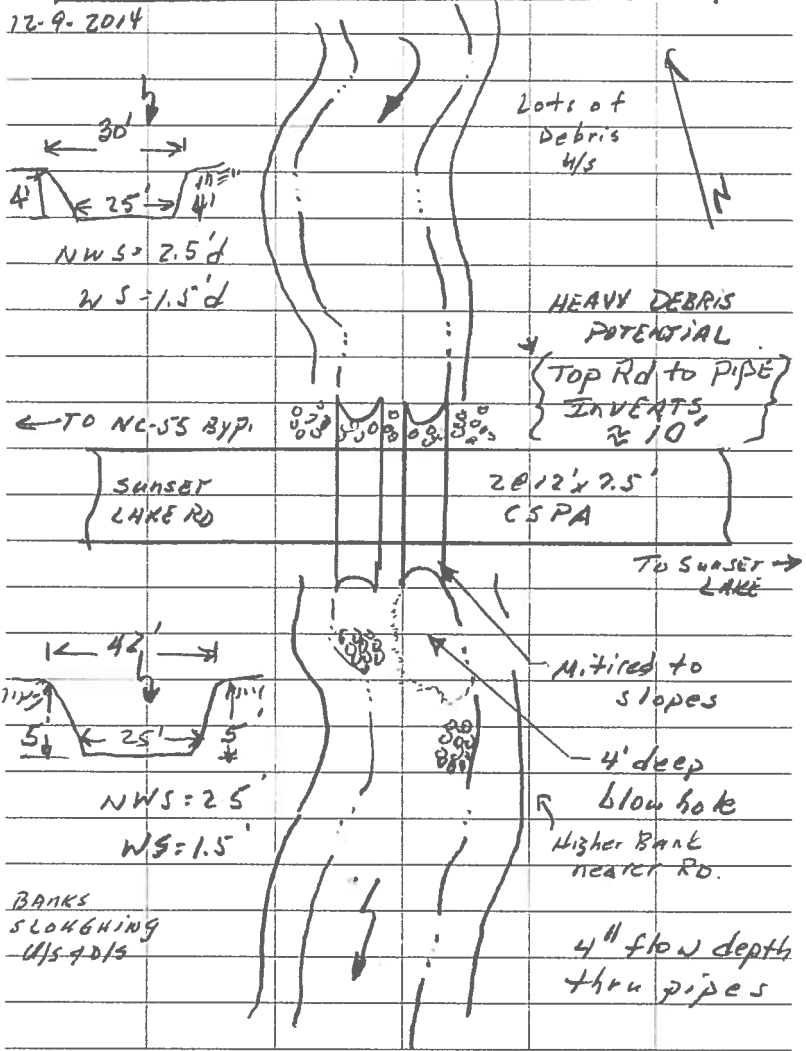 12-9-2014
30'
4'
25'
4'
NWS = 2.5'd
WS = 1.5'd
Lots of
Debris
U/S
N
HEAVY DEBRIS
POTENTIAL
Top Rd to PIPE
INVERTS
≈ 10'
← TO NC-55 BYP.
SUNSET
LAKE RD
2@12'x7.5'
CSPA
TO SUNSET →
LAKE
42'
5'
25'
5'
NWS = 25'
WS = 1.5'
Mitired to
slopes
4' deep
blow hole
Higher Bank
nearer RD.
BANKS
SLOUGHING
U/S & D/S
4" flow depth
thru pipes